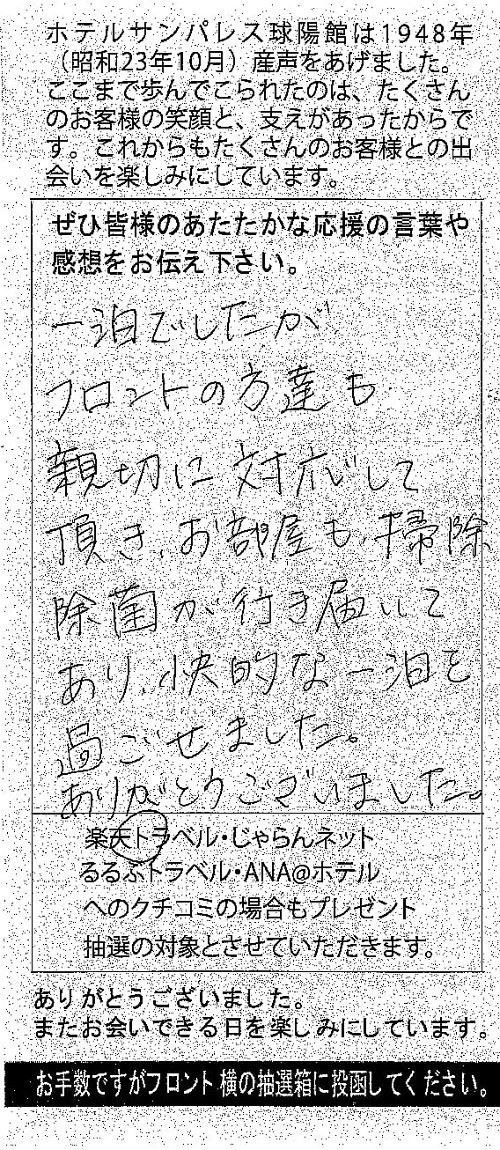 ホテルサンパレス球陽館は1948年
（昭和23年10月）産声をあげました。
ここまで歩んでこられたのは、たくさん
のお客様の笑顔と、支えがあったからで
す。これからもたくさんのお客様との出
会いを楽しみにしています。
ぜひ皆様のあたたかな応援の言葉や
感想をお伝え下さい。
一泊でしたが
フロントの方達も
親切に対応して
頂き、お部屋も、掃除
除菌が行き届いて
あり、快的な一泊を
過ごせました。
ありがとうございました。
楽天トラベル・じゃらんネット
るるぶトラベル・ANA@ホテル
へのクチコミの場合もプレゼント
抽選の対象とさせていただきます。
ありがとうございました。
またお会いできる日を楽しみにしています。
お手数ですがフロント横の抽選箱に投函してください。